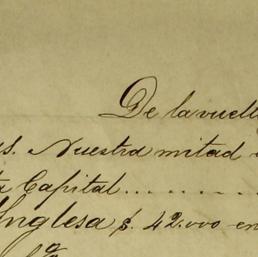 De la vuelt
Nuestra mitad
Capital
Inglesa $. 42.000 en